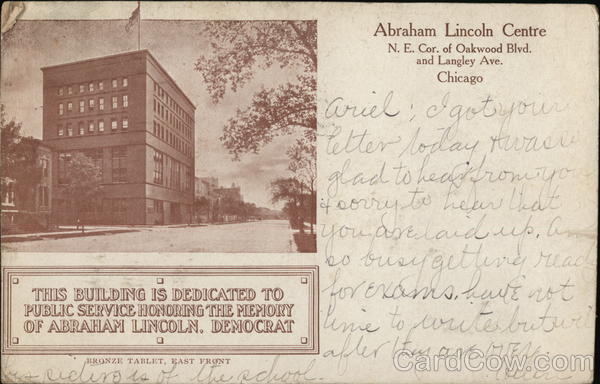 Abraham Lincoln Centre
N. E. Cor. of Oakwood Blvd.
and Langley Ave.
Chicago
Ariel: I got your
letter today & was so
glad to hear from you
& sorry to hear that
you are laid up. Am
so busy getting read
for exams. have not
time to write but wi
after
THIS BUILDING IS DEDICATED TO
PUBLIC SERVICE HONORING THE MEMORY
OF ABRAHAM LINCOLN, DEMOCRAT
BRONZE TABLET, EAST FRONT
of the school.
CardCow.com